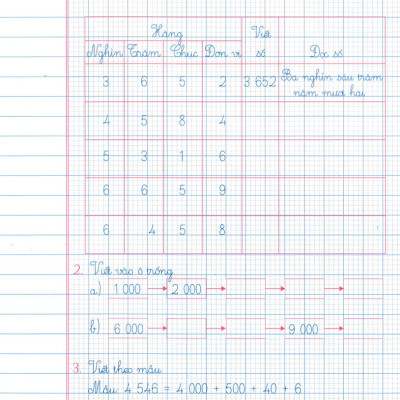 Hàng Viết
Nghìn Trăm Chục Đơn vị số Đọc số
3 6 5 2 3 652 Ba nghìn sáu trăm
năm mươi hai
4 5 8 4
5 3 1 6
6 6 5 9
6 4 5 8
2. Viết vào ô trống
a) 1 000 → 2 000 → → →
b) 6 000 → → → 9 000 →
3. Viết theo mẫu
Mẫu 4 546 = 4 000 + 500 + 40 + 6